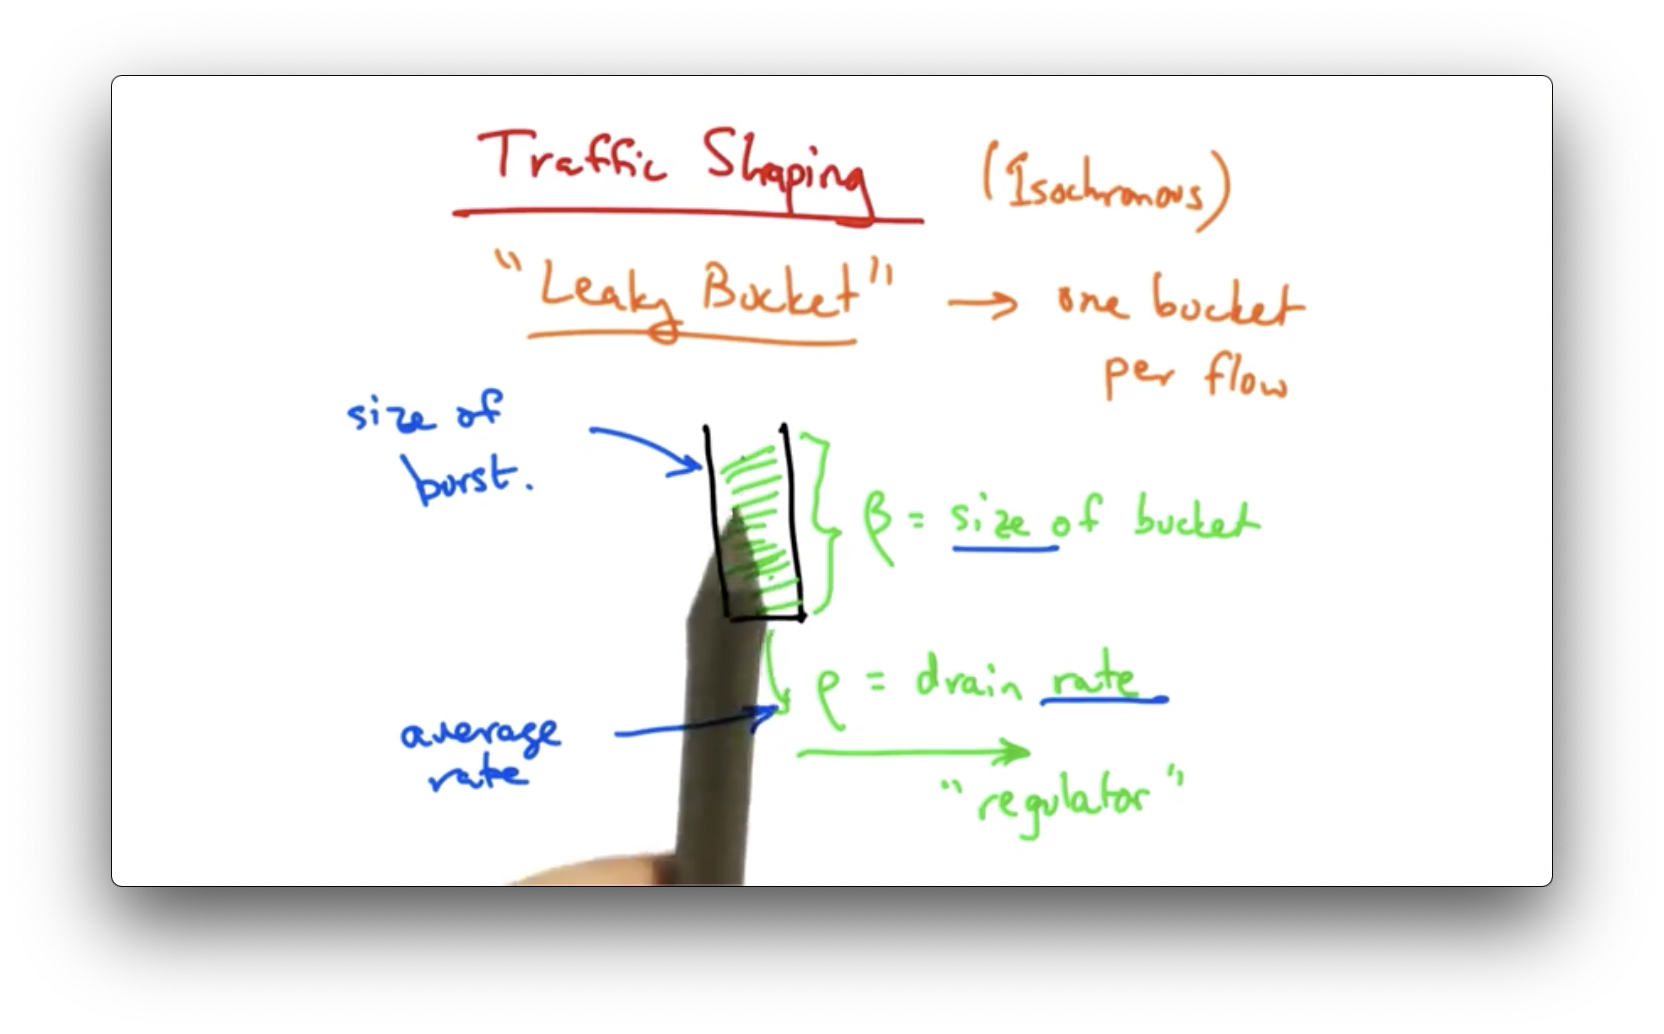 Traffic Shaping (Isochronous)
"Leaky Bucket" → one bucket
per flow
size of
burst.
β = size of bucket
ρ = drain rate
average
rate
"regulator"